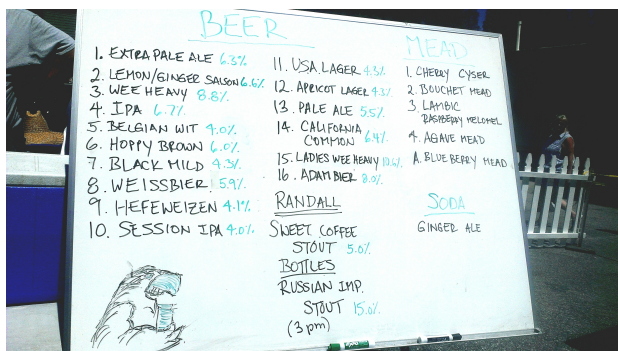 BEER
1. EXTRA PALE ALE 6.3%
2. LEMON/GINGER SAISON 6.6%
3. WEE HEAVY 8.8%
4. IPA 6.7%
5. BELGIAN WIT 4.0%
6. HOPPY BROWN 6.0%
7. BLACK MILD 4.3%
8. WEISSBIER 5.9%
9. HEFEWEIZEN 4.1%
10. SESSION IPA 4.0%
11. USA LAGER 4.3%
12. APRICOT LAGER 4.3%
13. PALE ALE 5.5%
14. CALIFORNIA
COMMON 6.4%
15. LADIES WEE HEAVY 10.6%
16. ADAM BIER 8.0%
RANDALL
SWEET COFFEE
STOUT 5.0%
BOTTLES
RUSSIAN IMP.
STOUT 15.0%
(3 pm)
MEAD
1. CHERRY CYSER
2. BOUCHET MEAD
3. LAMBIC
RASPBERRY MELOMEL
4. AGAVE MEAD
A. BLUEBERRY MEAD
SODA
GINGER ALE